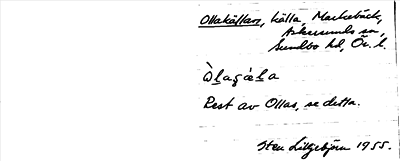 Ollakällan, källa, Markebäck,
Askersunds sn,
Sundbo hd, Ör. l.
Rest av Ollas, se detta.
Sten Liljebjörn 1955.